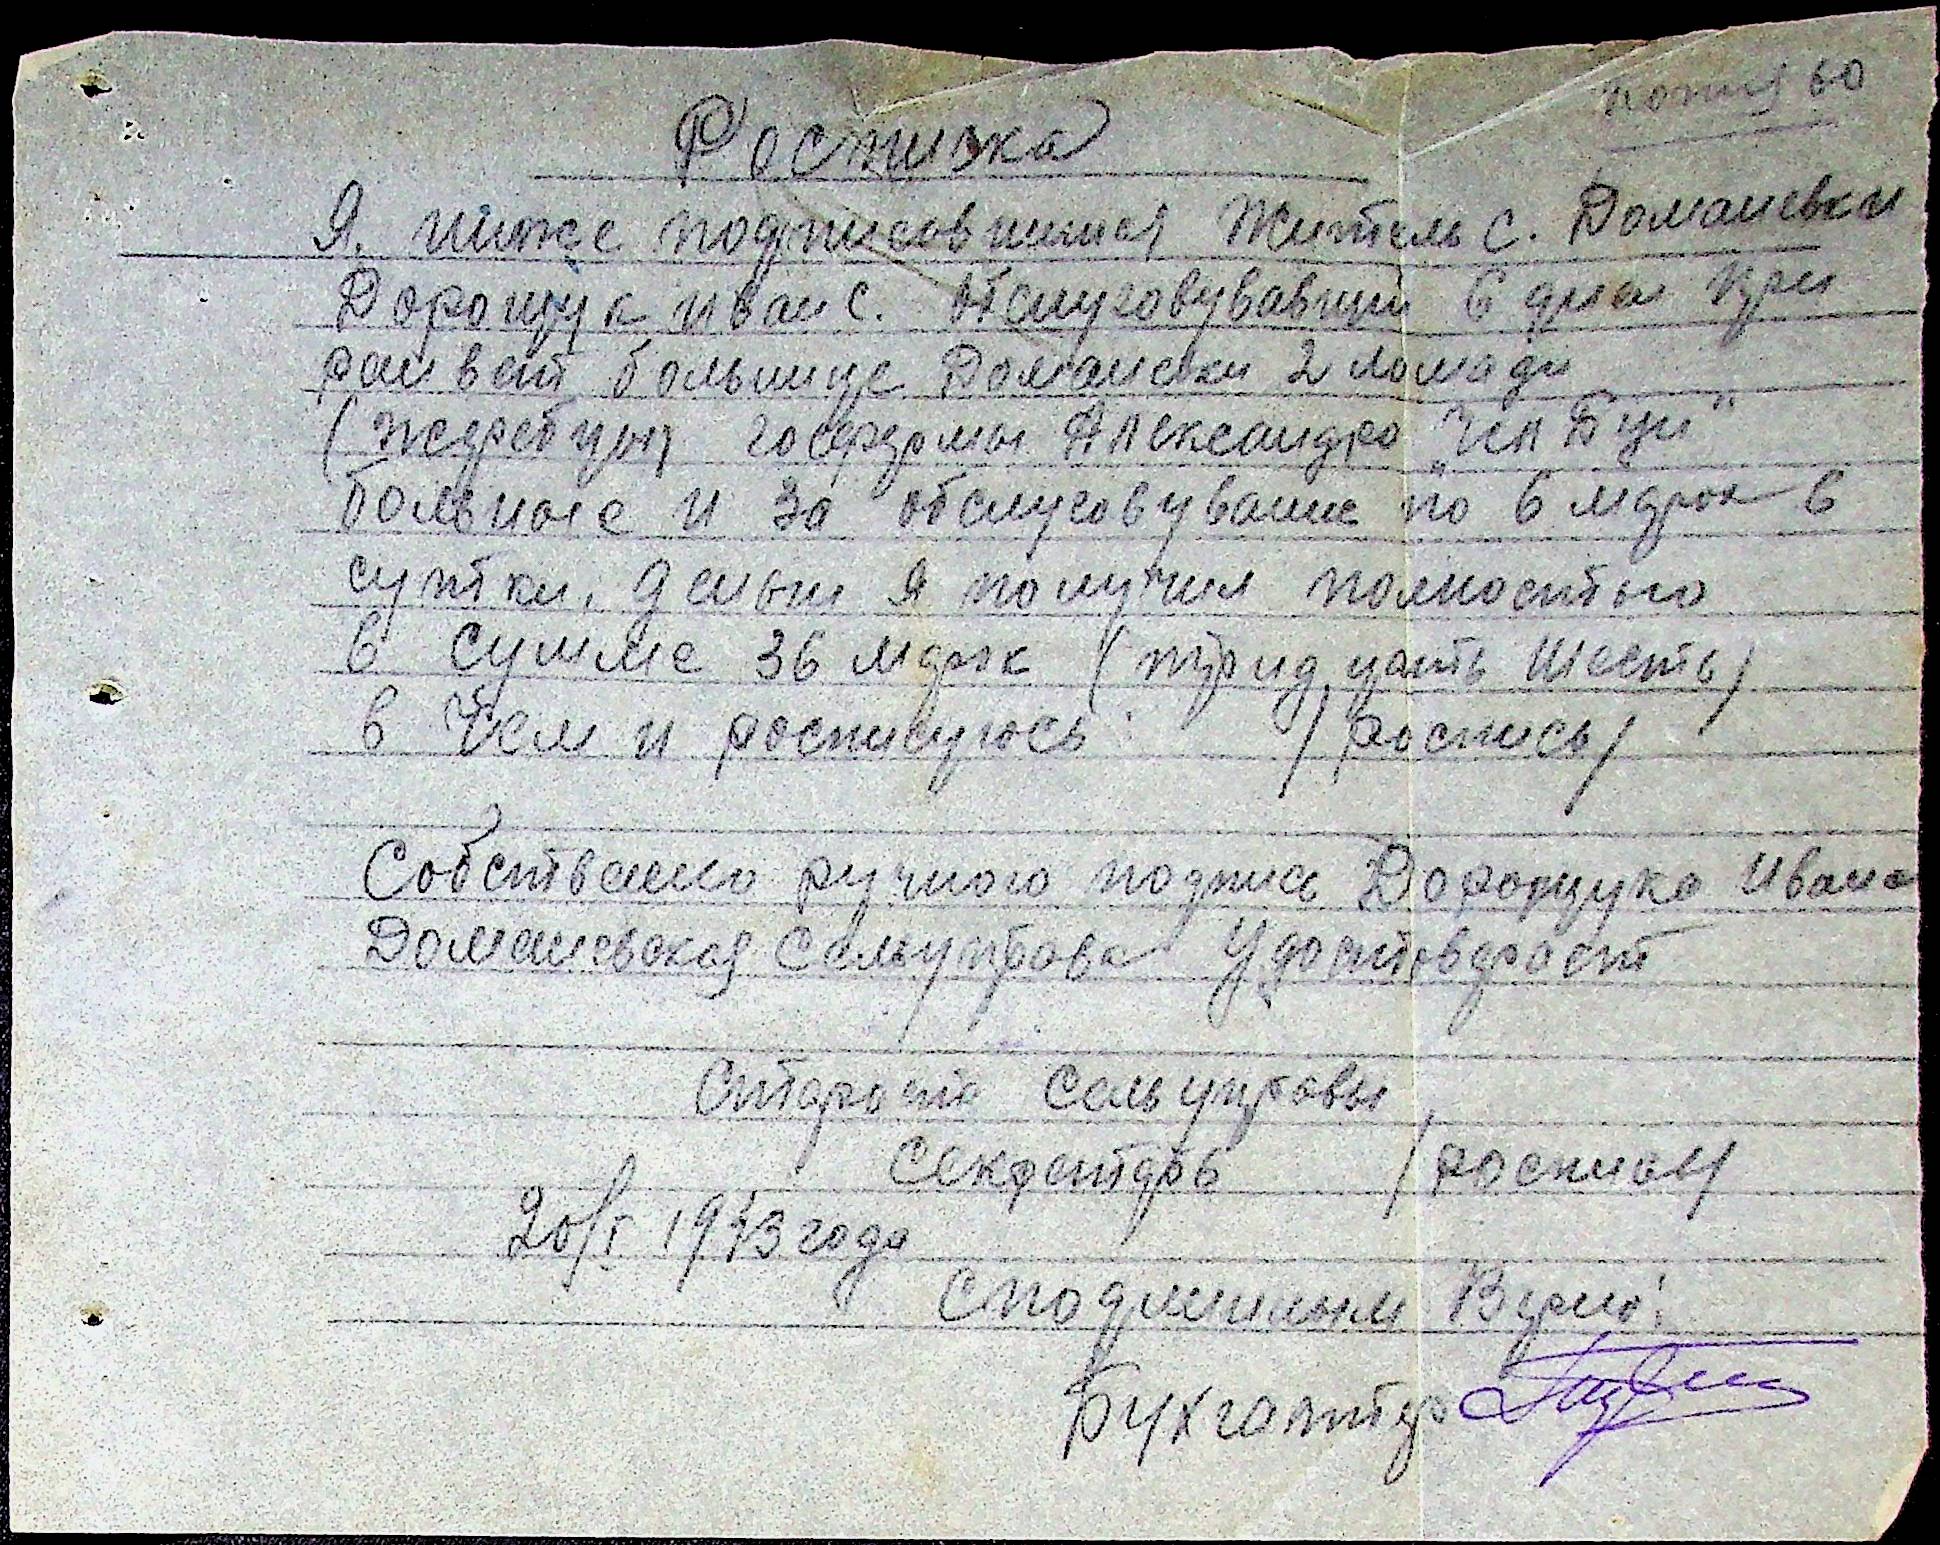 Росписка
Я, ниже подписовшийся житель с. Доманевки
Дорощук Иван С. обслуговувавший 6 дней при
райвет больнице Доманевки 2 лошади
(жеребцы госфермы Александро
больные и за обслуговувание по 6 марок в
сутки, деньги я получил полностью
в сумме 36 марок (тридцать шесть)
в чем и росписуюсь: /роспись/
Собственно ручного подпись Дорощука Ивана
Доманевская Сельуправа удостоверает
Староста Сельуправы
Секретарь /роспись/
20/I 1943 года
С подлинным Верно:
Бухгалтер